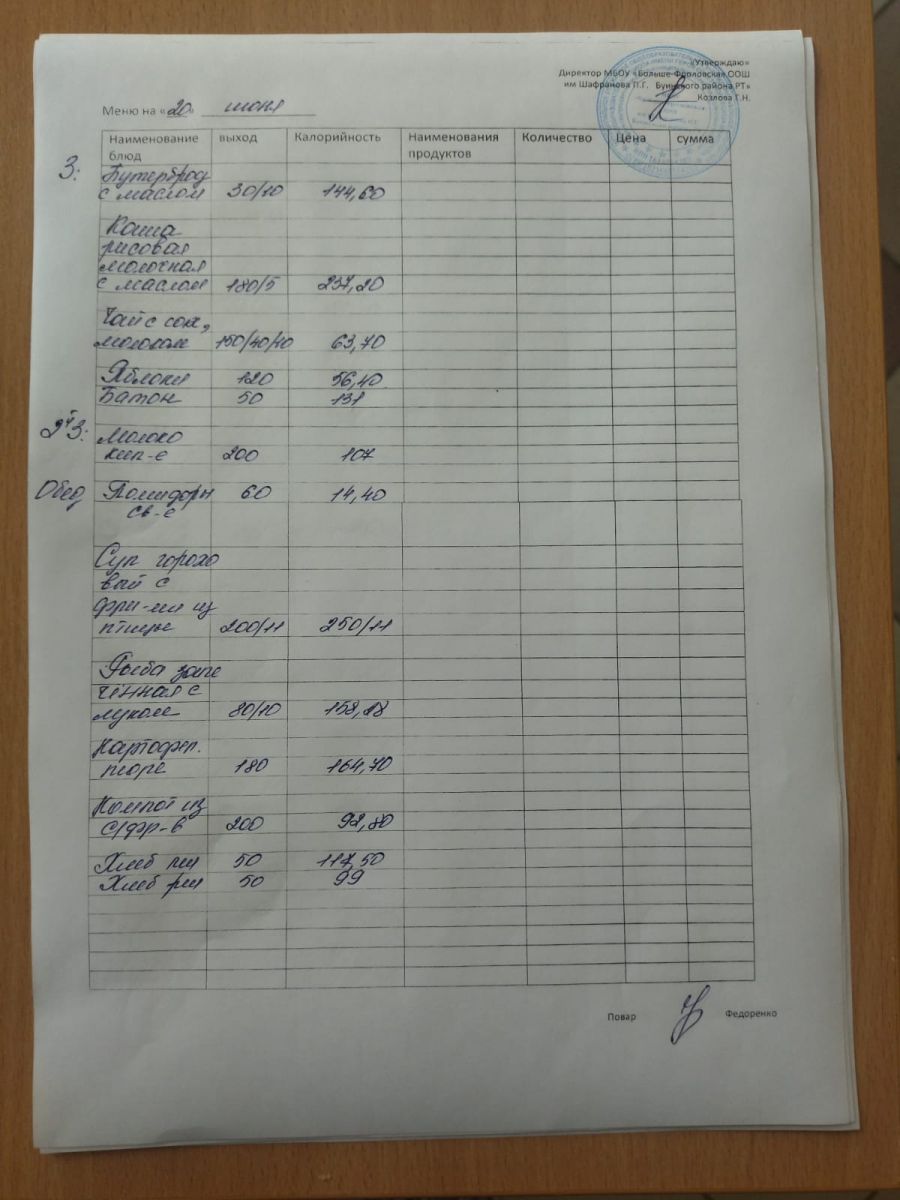 «Утверждаю»
Директор МБОУ «Больше-Фроловская ООШ
им Шафранова П.Г. Буинского района РТ»
Козлова Т.Н.
Меню на «20» июня
Наименование блюд выход Калорийность Наименования продуктов Количество Цена сумма
3: Бутерброд
с маслом 30/10 144,60
Каша
рисовая
молочная
с маслом 180/5 237,20
Чай с
молоком 150/40/10 63,70
Яблоки 120 56,40
Батон 50 131
2й 3: Молоко
кип-е 200 107
Обед Помидоры 60 14,40
св-е
Суп горохо
вый с
фри-ми из
птицы 200/11 250/11
Рыба запе
чённая с
луком 80/10
Картофел.
пюре 180 164,70
Компот из
с/фр-в 200 92,80
Хлеб пш 50 117,50
Хлеб рж 50 99
Повар Федоренко